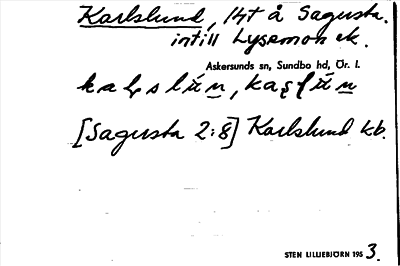 Karlslund, 1ht å Sagusta.
intill Lysemon ek.
Askersunds sn, Sundbo hd, Ör. l.
[Sagusta 2:8] Karlslund kb.
STEN LILLIEBJÖRN 1953.